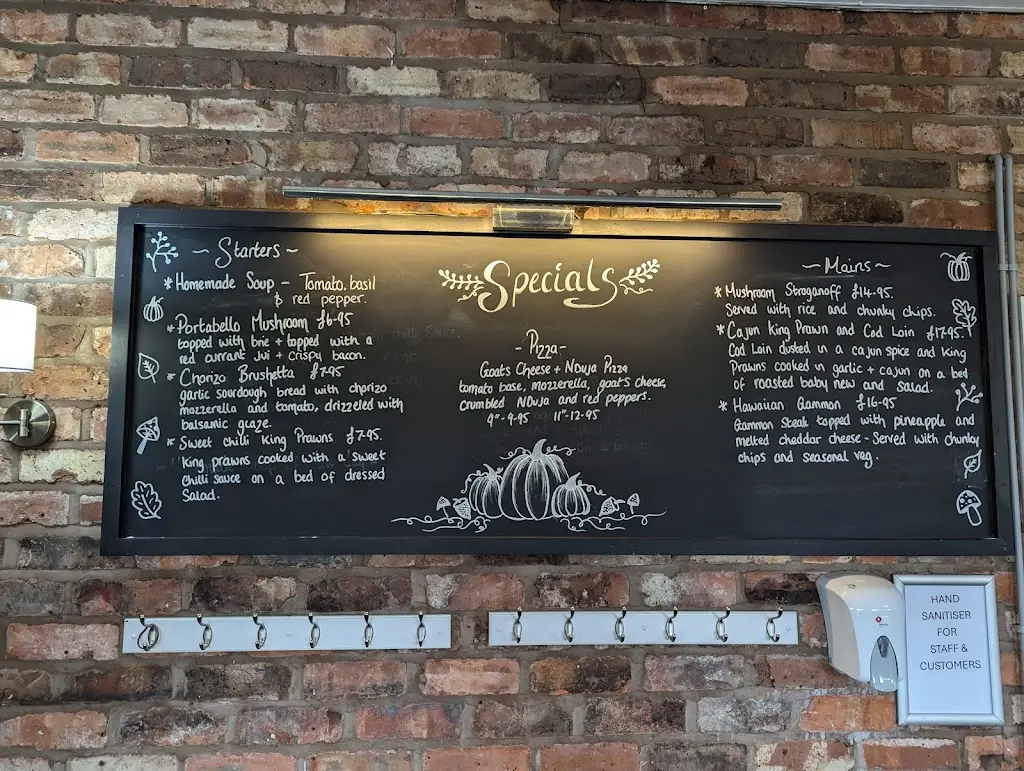 ~ Starters ~
* Homemade Soup - Tomato, basil
& red pepper.
* Portabello Mushroom £6-95
topped with brie + topped with a
red currant jui + crispy bacon.
* Chorizo Brushetta £7-95
garlic sourdough bread with chorizo
mozzerella and tomato, drizzled with
balsamic glaze.
* Sweet chilli King Prawns £7-95.
King prawns cooked with a sweet
chilli sauce on a bed of dressed
salad.
Specials
- Pizza -
Goats Cheese + NDuja Pizza
tomato base, mozzerella, goat's cheese,
crumbled NDuja and red peppers.
9"- 9-95 11"-12-95
~ Mains ~
* Mushroom Stroganoff £14-95.
Served with rice and chunky chips.
* Cajun King Prawn and Cod Loin £17-95.
Cod Loin dusted in a cajun spice and King
Prawns cooked in garlic + cajun on a bed
of roasted baby new and salad.
* Hawaiian Gammon £16-95
Gammon Steak topped with pineapple and
melted cheddar cheese - Served with chunky
chips and seasonal veg.
HAND
SANITISER
FOR
STAFF &
CUSTOMERS